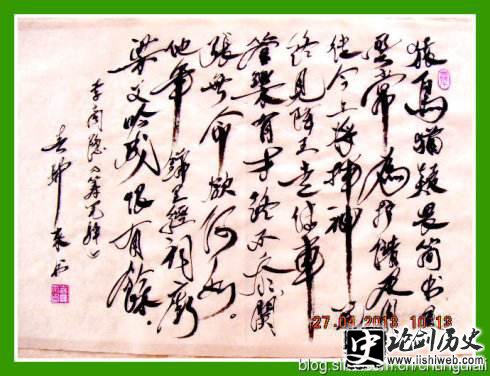 猿鳥猶疑畏簡書風
雲常為護儲胥
徒令上將揮神筆
終見降王走傳車
管樂有才終不忝關
張無命欲何如
他年錦里經祠廟
梁父吟成恨有餘
李商隱《籌筆驛》
27.04.2013 10:13
史 论剑历史
www.lishiweb.com